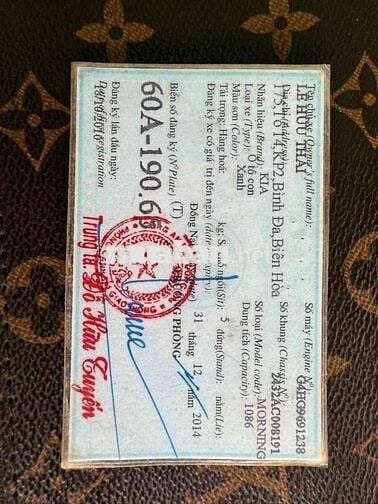 Tên chủ xe (Owner's full name):
LÊ HỮU THÁI
Địa chỉ (Address):
175,TỔ14,KP2,Bình Đa,Biên Hòa
Nhãn hiệu (Brand): KIA
Loại xe (Type): Ô tô con
Màu sơn (Color): Xanh
Tải trọng: Hàng hoá: kg;
Số máy (Engine Nº): G4HG9691238
Số khung (Chassis Nº): 2A32AC008191
Số loại (Model code): MORNING
Dung tích (Capacity): 1086
ngồi(Sit): 5 đứng(Stand): nằm(Lie):
Đăng ký xe có giá trị đến ngày (date of expiry)
Đồng Nai, 31 tháng 12 năm 2014
Biển số đăng ký (NºPlate) (T)
60A-190.65
PHÒNG
Đăng ký lần đầu ngày:
18/10/2010
Trung tá Đỗ Hữu Tuyến